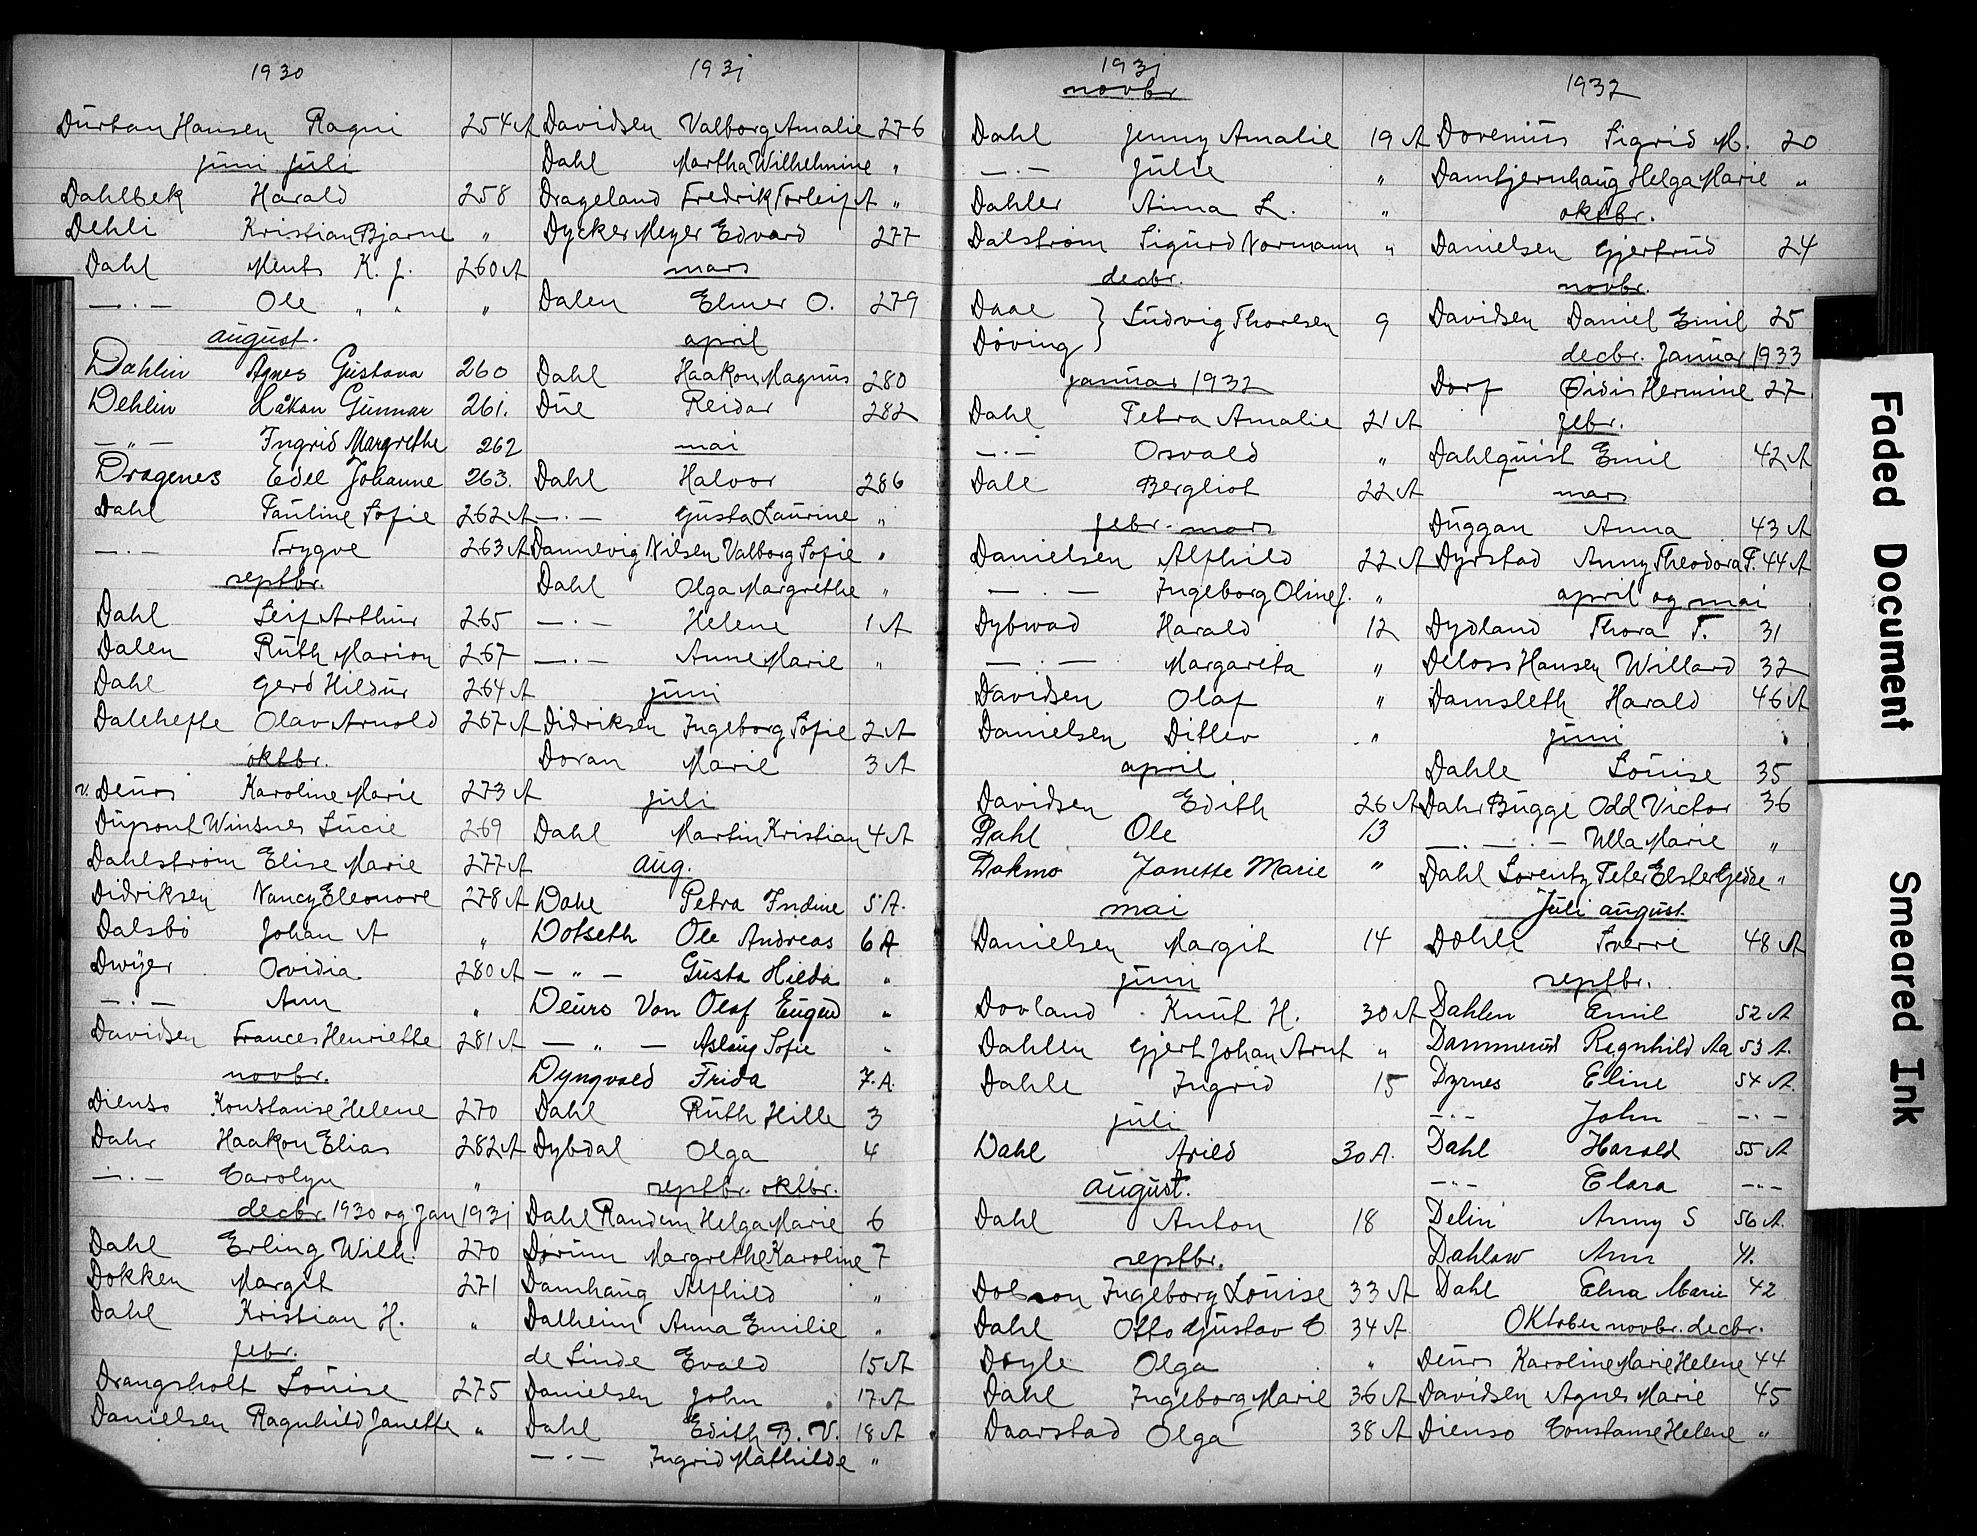 1930
Durban Hansen Ragni 254 A
juni juli
Dahlbek Harald 258
Dehli Kristian Bjarne "
Dahl Ments K. J. 260 A
—.— Ole " " "
august.
Dahlin Agnes Gustava 260
Dehlin Håkon Gunnar 261.
—"— Ingrid Margrethe 262
Dragenes Edel Johanne 263.
Dahl Pauline Sofie 262 A
—.— Trygve 263 A
septbr.
Dahl Leif Arthur 265
Dalen Ruth Marion 267
Dahl Gerd Hildur 264 A
Dalehefte Olav Arnold 267 A
oktbr.
v. Deurs Karoline Marie 273 A
Dupont Winsnes Lucie 269
Dahlstrøm Elise Marie 277 A
Didriksen Nancy Eleonore 278 A
Dalsbö Johan A "
Dwyer Ovidia 280 A
—.— Ann "
Davidsen Frances Henriette 281 A
novbr.
Dienso Konstanse Helene 270
Dahr Haakon Elias 282 A
—.— Carolyn "
decbr. 1930 og Jan 1931
Dahl Erling Wilh. 270
Dokken Margit 271
Dahl Kristian H. "
febr.
Drangsholt Louise 275
Danielsen Ragnhild Janette "
1931
Davidsen Valborg Amalie 276
Dahl Martha Wilhelmine "
Drageland Fredrik Torleif A "
Dycker Meyer Edvard 277
mars
Dalen Elmer O. 279
april
Dahl Haakon Magnus 280
Due Reidar 282
mai
Dahl Halvor 286
—.— Gusta Laurine "
Dannevig Nilsen Valborg Sofie "
Dahl Olga Margrethe "
—.— Helene 1 A
—.— Anne Marie "
juni
Didriksen Ingeborg Sofie 2 A
Doran Marie 3 A
juli
Dahl Martin Kristian 4 A
aug.
Dahl Petra Indine 5 A.
Dotseth Ole Andreas 6 A
—"— Gusta Hilda "
Deurs Von Olaf Eugen "
—"— Aslaug Sofie "
Dyngvold Frida 7. A.
Dahl Ruth Hille 3
Dybdal Olga 4
septbr. oktbr.
Dahl Randem Helga Marie 6
Dørum Margrethe Karoline 7
Damhaug Alfhild "
Dalheim Anna Emilie "
de Linde Evald 15 A
Danielsen John 17 A
Dahl Edith B. V. 18 A
—.— Ingrid Mathilde "
1931
novbr
Dahl Jenny Amalie 19 A
—.— Julie "
Dahler Anna L. "
Dalstrøm Sigurd Normann "
decbr.
Daae } Ludvig Thoresen 9
Døving }
januar 1932
Dahl Petra Amalie 21 A
—.— Osvald "
Dale Bergliot 22 A
febr. mars
Danielsen Alfhild 22 A
—.— Ingeborg Oline J. "
Dybwad Harald 12
—.— Margareta "
Davidsen Olaf "
Danielsen Ditlev "
april
Davidsen Edith 26 A
Dahl Ole 13
Dakmo Janette Marie "
mai
Danielsen Margit 14
juni
Dovland Knut H. 30 A
Dahlen Gjert Johan Arnt "
Dahle Ingrid 15
juli
Dahl Arild 30 A.
august.
Dahl Anton 18
septbr.
Ingeborg Louise 33 A
Dahl Otto Gustav E 34 A
Doyle Olga "
Dahl Ingeborg Marie 36 A
Daarstad Olga 38 A
1932
Dorenius Sigrid M. 20
Damtjernhaug Helga Marie "
oktbr.
Danielsen Gjertrud 24
novbr.
Davidsen Daniel Emil 25
decbr. Januar 1933
Dorf Øidis Hermine 27
febr.
Dahlquist Emil 42 A
mars
Duggan Anna 43 A
Dyrstad Anny Theodora F. 44 A
april og mai
Dydland Thora T. 31
Deloss Hansen Willard 32
Damsleth Harald 46 A
juni
Dahle Louise 35
Dahr Bugge Odd Victor 36
—.—.— Ulla Marie "
Dahl Lorentz Peter Elster Gedde "
Juli august.
Dahle Sverre 48 A
septbr.
Dahlen Emil 52 A
Dammerud Ragnhild Aa 53 A.
Dyrnes Eline 54 A.
—.— John —.—
Dahl Harald 55 A
—"— Clara —"—
Delin Anny S 56 A.
Dahlow Ann 41.
Dahl Elna Marie 42
Oktober novbr. decbr.
Deurs Karoline Marie Helene 44
Davidsen Agnes Marie 45
Dienso Constanse Helene "
Faded Document
Smeared Ink